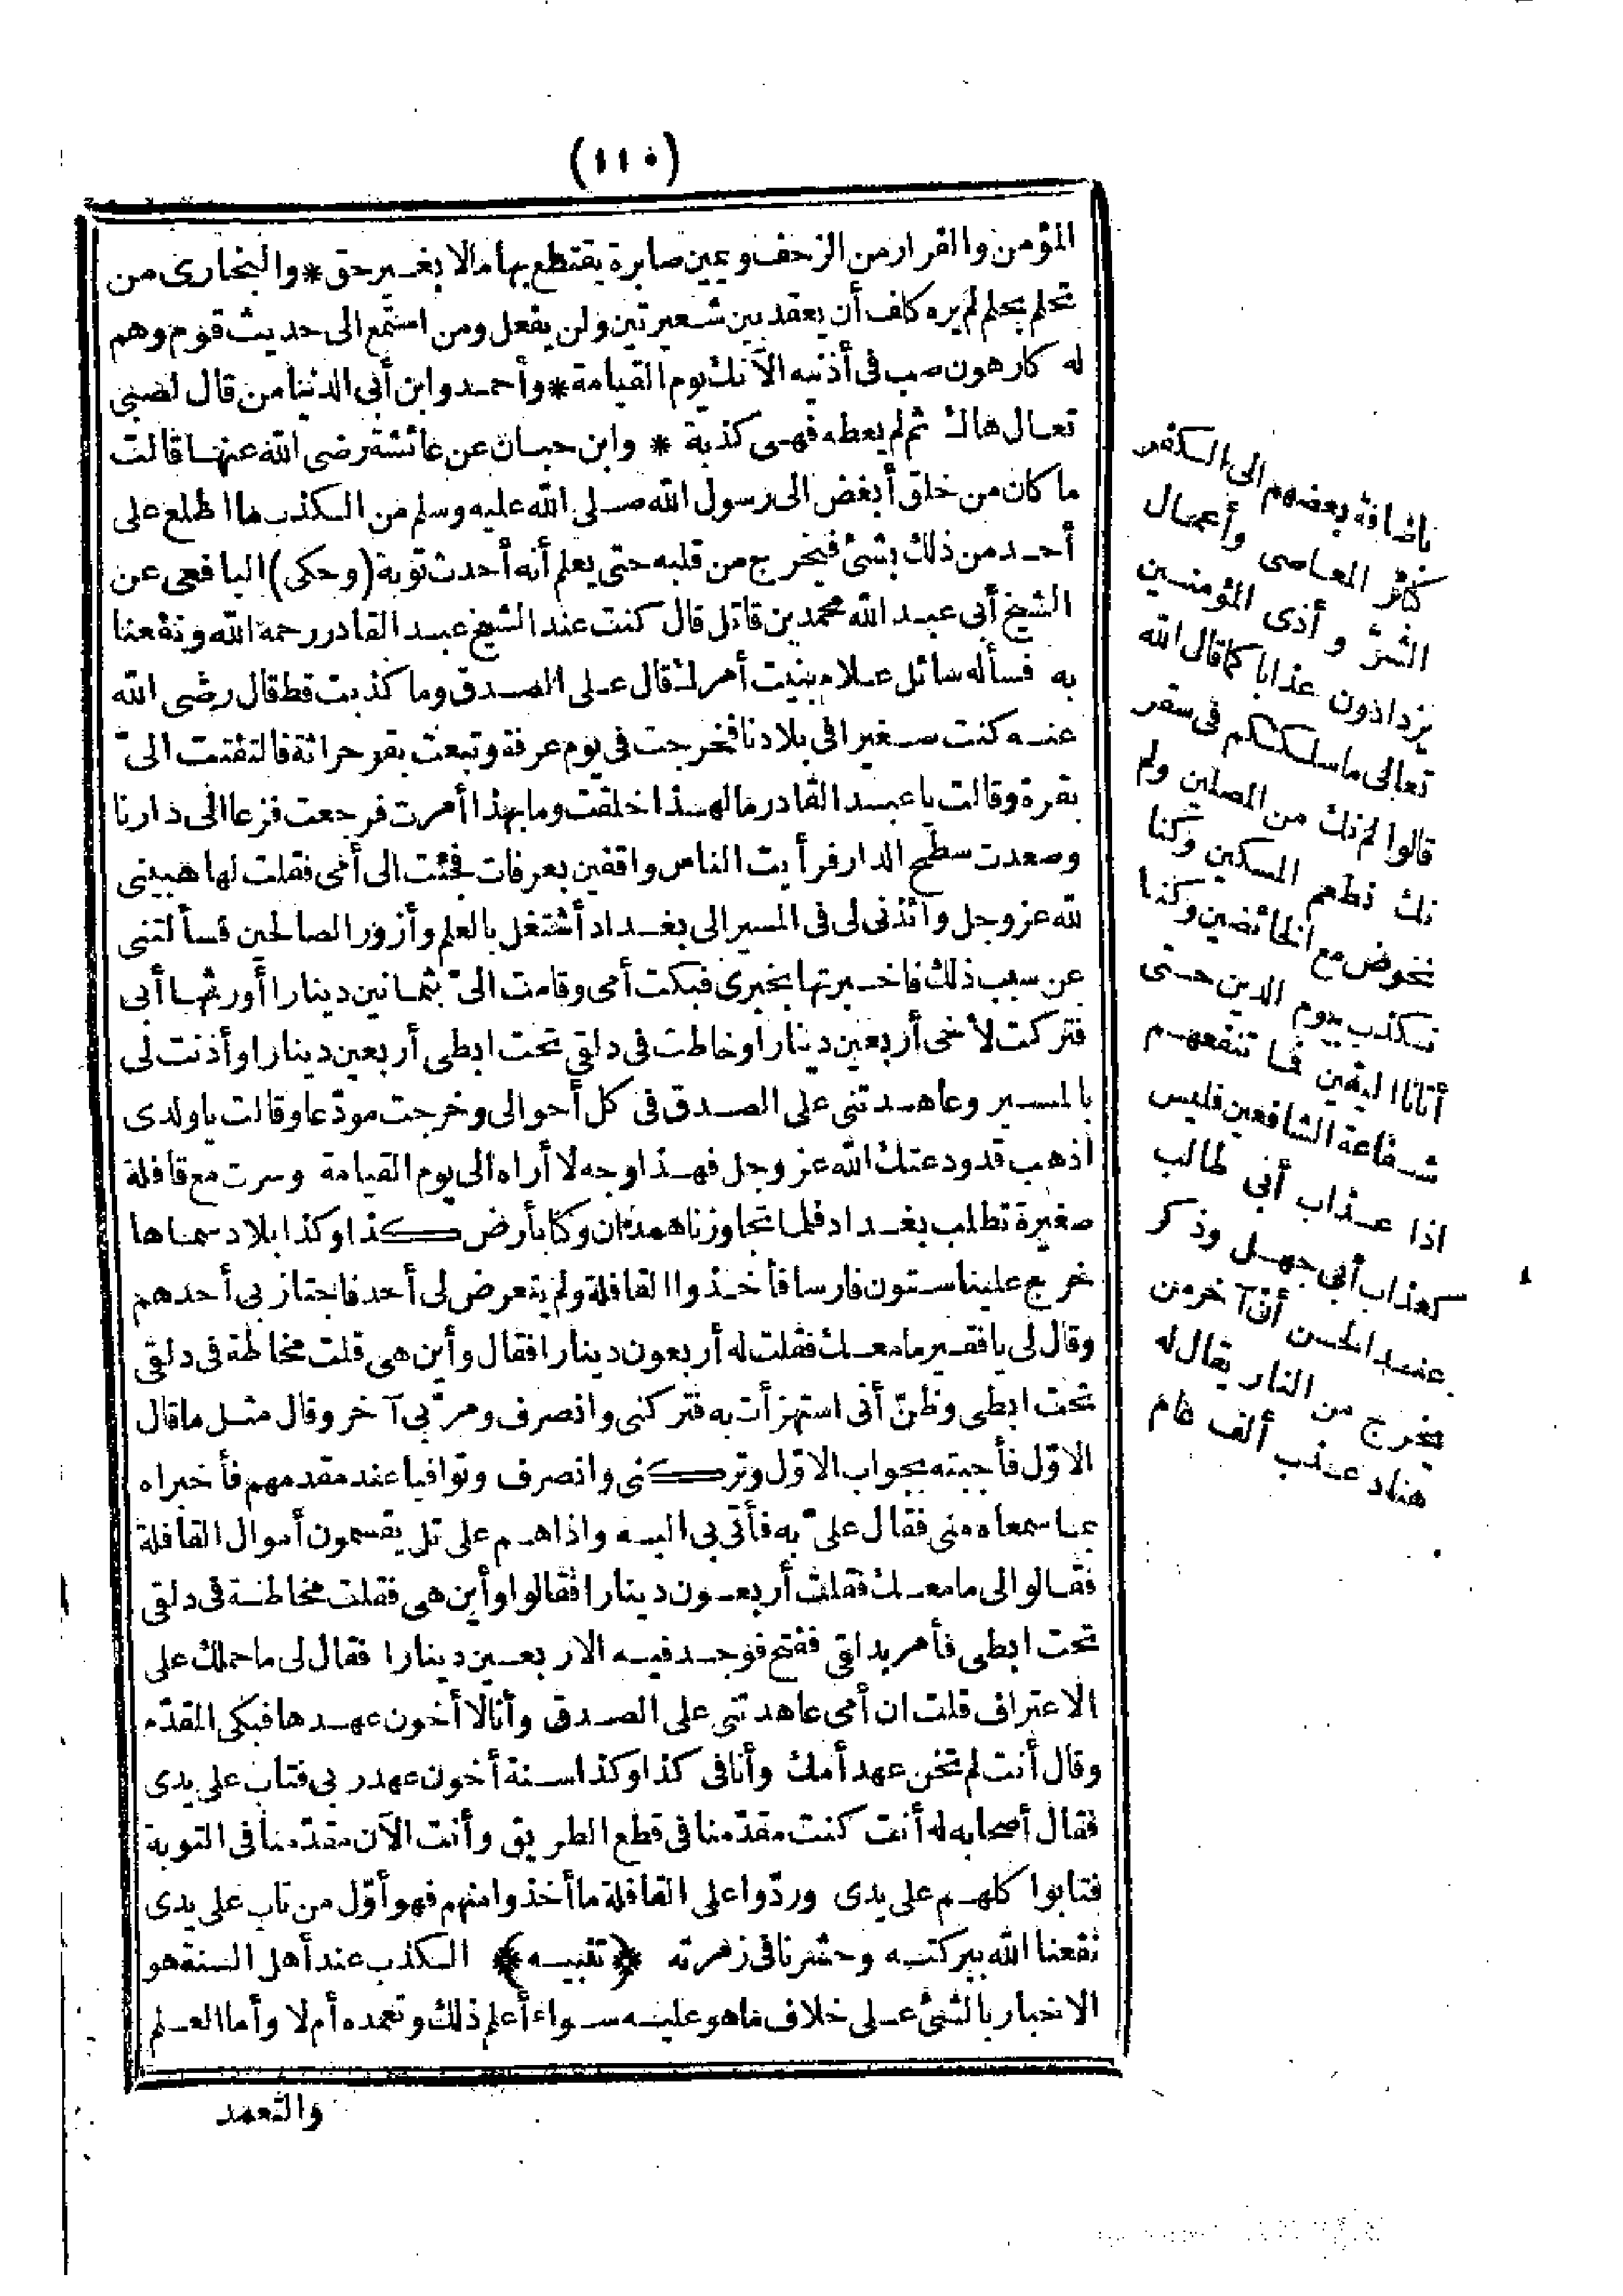 (١١٠)
المؤمن والفرار من الزحف ويمين صابرة يقتطع بها مالا بغير حق * والبخارى من
تحلم بحلم لم يره كلف أن يعقد بين شعيرتين ولن يفعل ومن استمع الى حديث قوم وهم
له كارهون صب فى أذنيه الآنك يوم القيامة * وأحمد وابن أبى الدنيا من قال لصبى
تعال هاك ثم لم يعطه فهى كذبة * وابن حبان عن عائشة رضى الله عنها قالت
ما كان من خلق أبغض الى رسول الله صلى الله عليه وسلم من الكذب ما اطلع على
أحد من ذلك بشئ فيخرج من قلبه حتى يعلم أنه أحدث توبة (وحكى) اليافعى عن
الشيخ أبى عبد الله محمد بن قاتل قال كنت عند الشيخ عبد القادر رحمه الله ونفعنا
به فسأله سائل علام بنيت أمرك قال على الصدق وما كذبت قط قال رضى الله
عنه كنت صغيرا فى بلادنا فخرجت فى يوم عرفة وتبعت بقر حراثة فالتفتت الىّ
بقرة وقالت يا عبد القادر ما لهذا خلقت وما بهذا أمرت فرجعت فزعا الى دارنا
وصعدت سطح الدار فرأيت الناس واقفين بعرفات فجئت الى أمى فقلت لها هبينى
لله عز وجل وائذنى لى فى المسير الى بغداد أشتغل بالعلم وأزور الصالحين فسألتنى
عن سبب ذلك فاخبرتها بخبرى فبكت أمى وقامت الىّ بثمانين دينارا أورثها أبى
فتركت لأخى أربعين دينارا وخاطت فى دلقى تحت ابطى أربعين دينارا وأذنت لى
بالمسير وعاهدتنى على الصدق فى كل أحوالى وخرجت مودّعا وقالت يا ولدى
اذهب قد ودعتك الله عز وجل فهذا وجه لا أراه الى يوم القيامة وسرت مع قافلة
صغيرة تطلب بغداد فلما تجاوزنا همذان وكنا بأرض كذا وكذا بلاد سماها
خرج علينا ستون فارسا فأخذوا القافلة ولم يتعرض لى أحد فاجتاز بى أحدهم
وقال لى يا فقير ما معك فقلت له أربعون دينارا فقال وأين هى قلت مخاطة فى دلقى
تحت ابطى وظنّ أنى استهزأت به فتركنى وانصرف ومرّ بى آخر وقال مثل ما قال
الاوّل فأجبته بجواب الاوّل وتركنى وانصرف وتوافيا عند مقدمهم فأخبراه
بما سمعاه منى فقال علىّ به فأتى بى اليه واذا هم على تل يقسمون أموال القافلة
فقالوا لى ما معك فقلت أربعون دينارا فقالوا وأين هى فقلت مخاطة فى دلقى
تحت ابطى فأمر بدلقى ففتح فوجد فيه الاربعين دينارا فقال لى ما حملك على
الاعتراف قلت ان أمى عاهدتنى على الصدق وأنا لا أخون عهدها فبكى المقدّم
وقال أنت لم تخن عهد أمك وأنا فى كذا وكذا سنة أخون عهد ربى فتاب على يدى
فقال أصحابه له أنت كنت مقدّمنا فى قطع الطريق وأنت الآن مقدّمنا فى التوبة
فتابوا كلهم على يدى وردّوا على القافلة ما أخذوا منهم فهو أوّل من تاب على يدى
نفعنا الله ببركته وحشرنا فى زمرته ﴿تنبيه﴾ الكذب عند أهل السنة هو
الاخبار بالشئ على خلاف ما هو عليه سواء أعلم ذلك وتعمده أم لا وأما العلم
والتعمد
باضافة بعضهم الى الكفر
كائر المعاصى وأعمال
الشرّ وأذى المؤمنين
يزدادون عذابا كما قال الله
تعالى ما سلككم فى سقر
قالوا لم نك من المصلين ولم
نك نطعم المسكين وكنا
نخوض مع الخائضين وكنا
نكذب بيوم الدين حتى
أتانا اليقين فما تنفعهم
شفاعة الشافعين فليس
اذا عذاب أبى طالب
كعذاب أبى جهل وذكر
عند الحسن أن آخر من
يخرج من النار يقال له
هناد عذب ألف عام